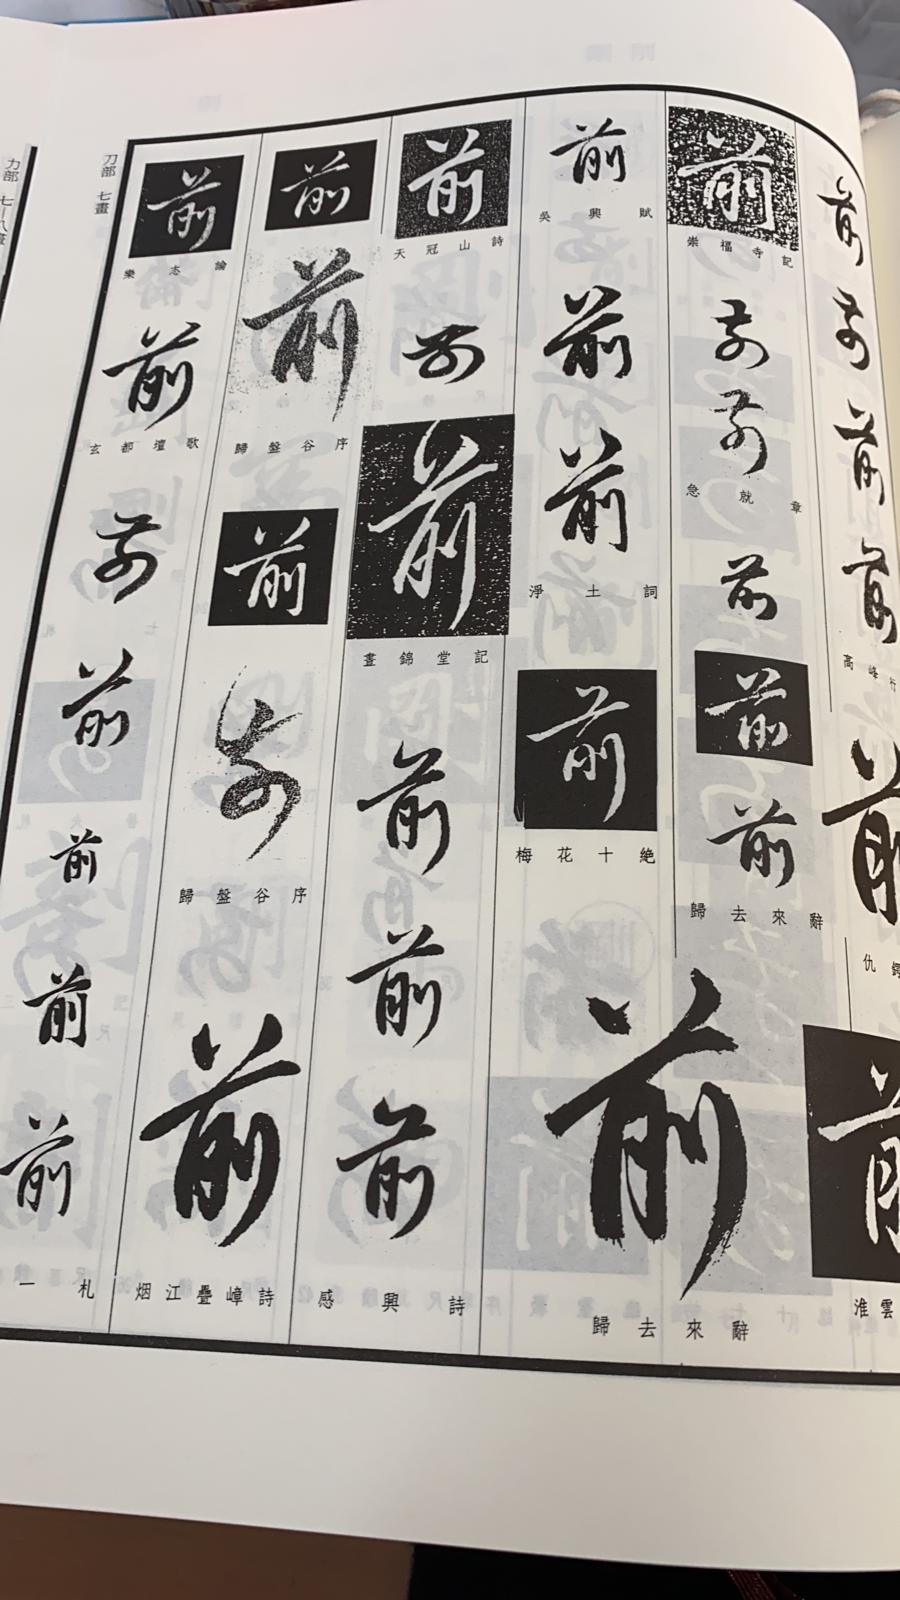 前
前
前
前
高峰行
前
仇鍔
前
淮雲
前
崇福寺記
前
前
急就章
前
前
前
歸去來辭
前
歸去來辭
前
吳興賦
前
前
淨土詞
前
梅花十絕
前
天冠山詩
前
前
晝錦堂記
前
前
前
感興詩
前
前
歸盤谷序
前
前
歸盤谷序
前
烟江疊嶂詩
前
樂志論
前
玄都壇歌
前
前
前
前
前
一札
刀部 七畫
力部 七—八畫